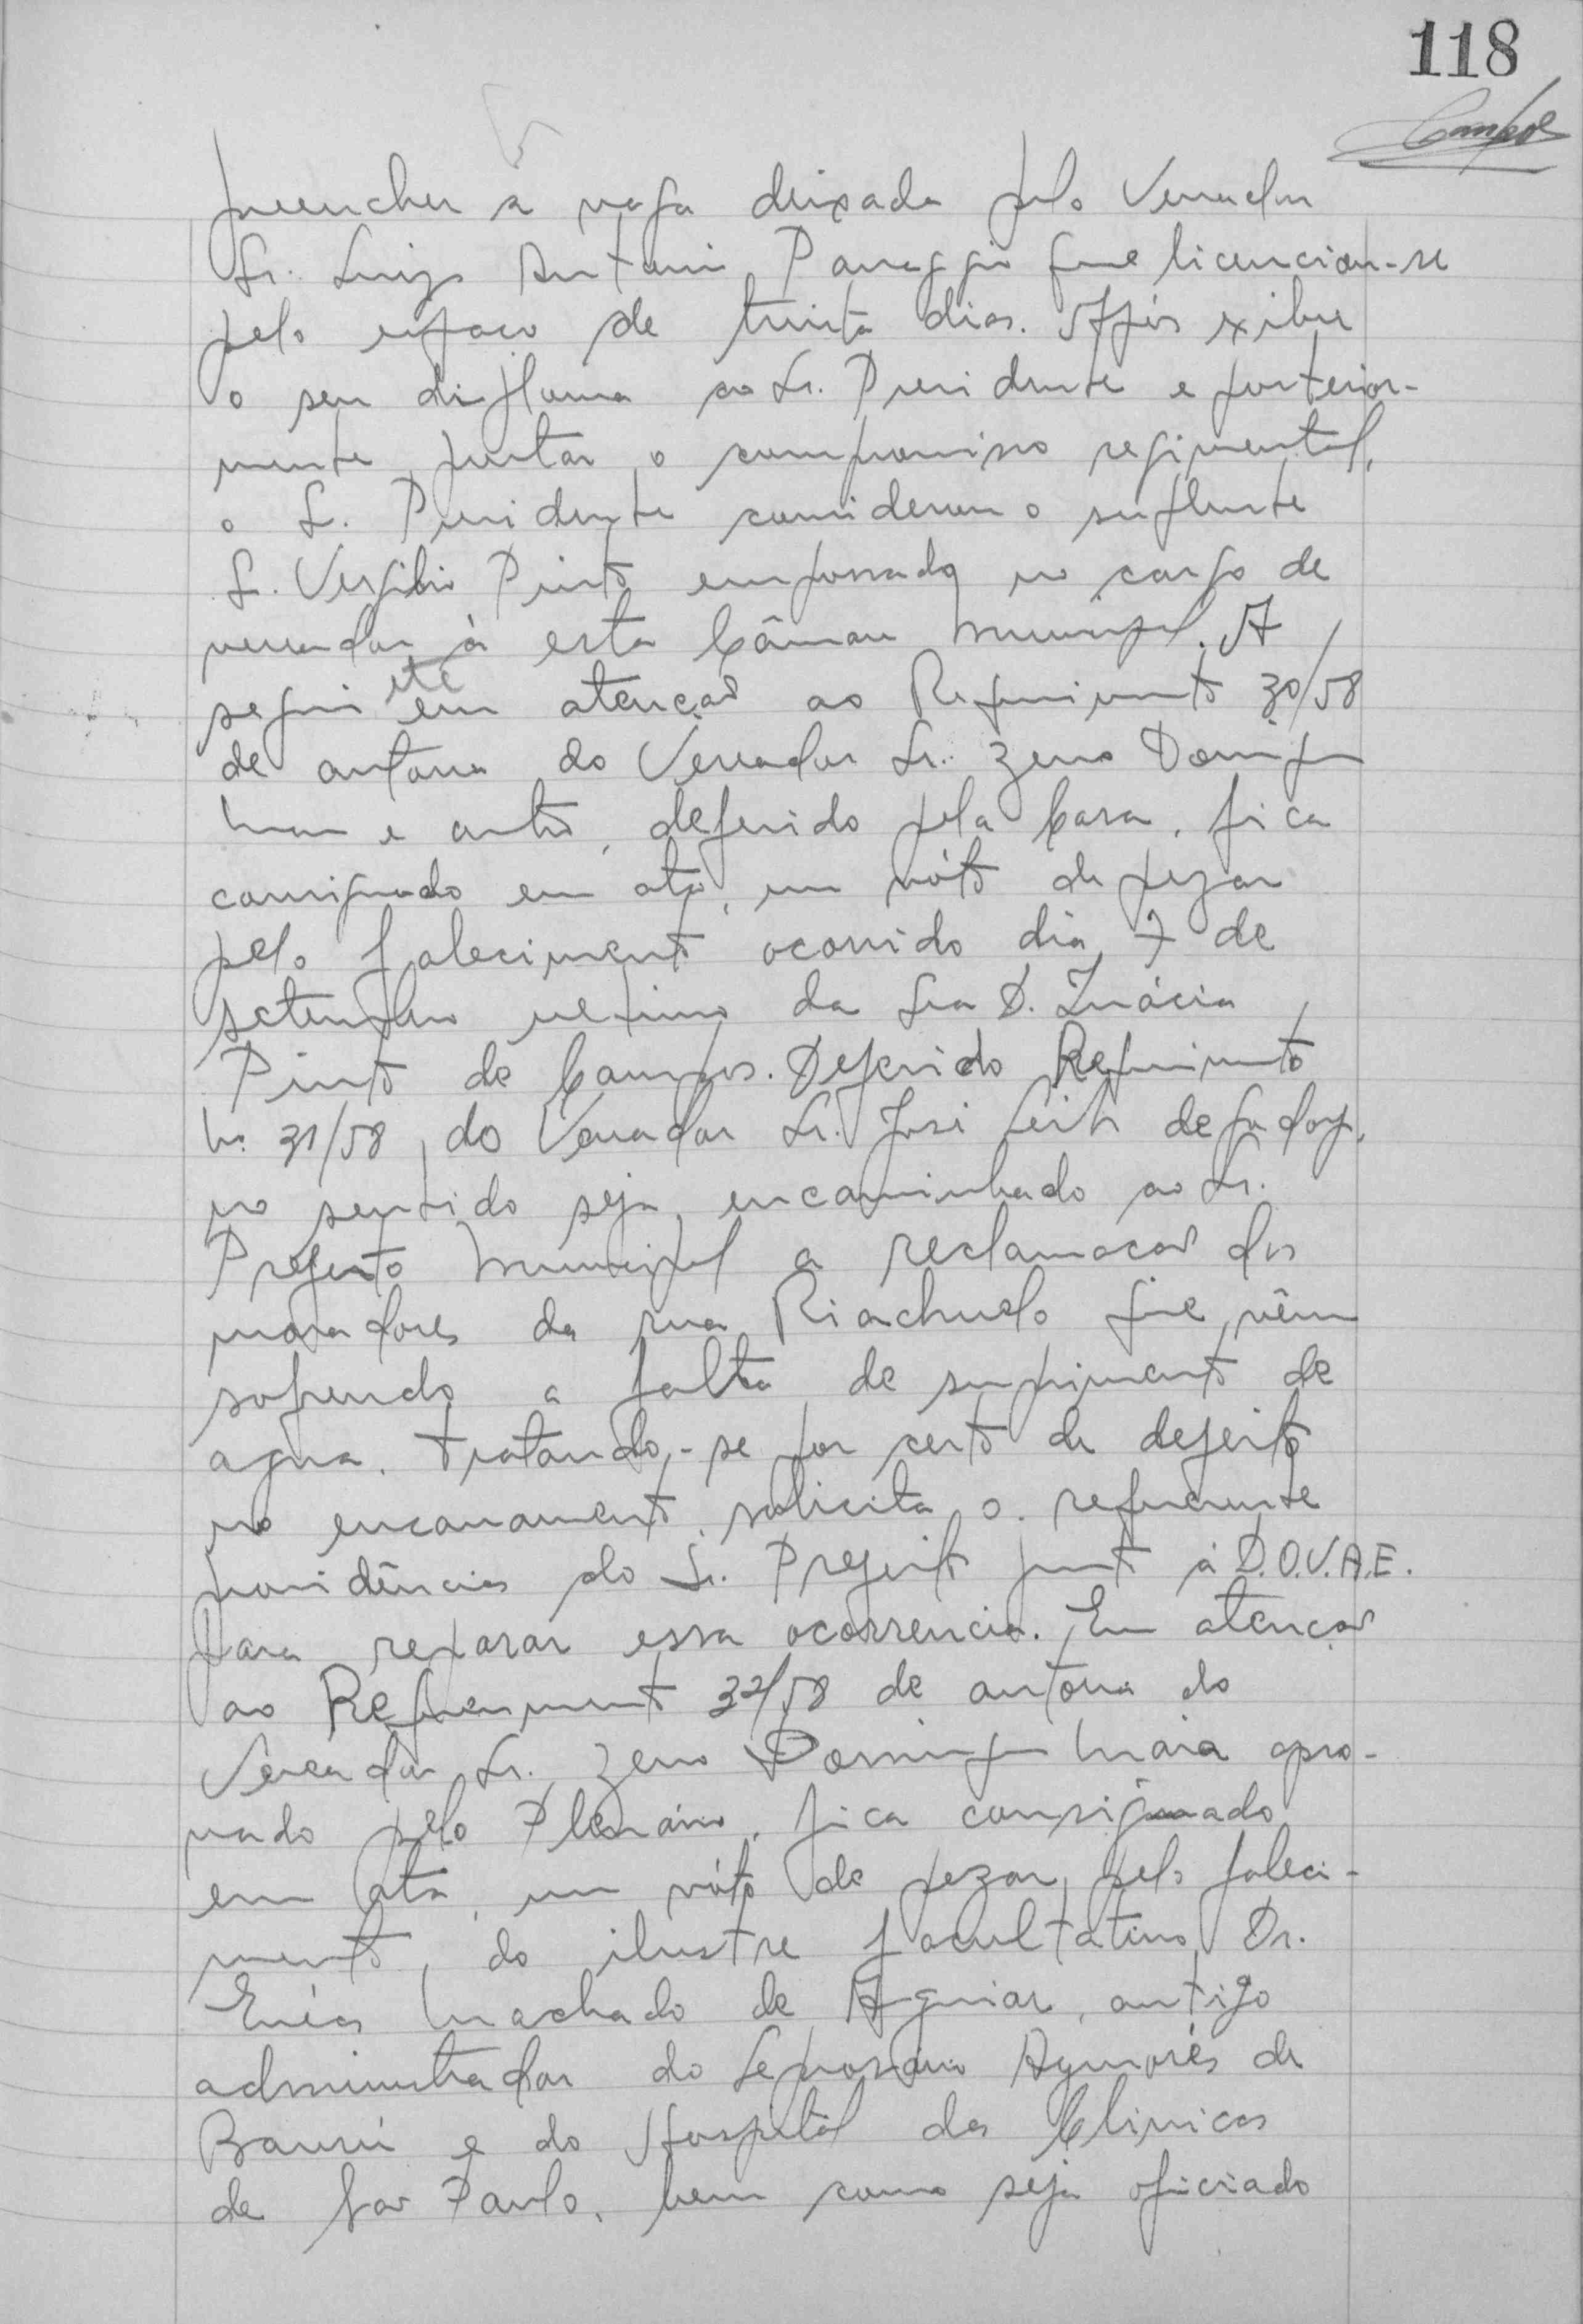 118
Campos
preencher a vaga deixada pelo Vereador
Sr. Luiz Antonio Paneggio que licenciou-se
pelo espaço de trinta dias. Após exibir
o seu diploma ao Sr. Presidente e posterior-
mente prestar o compromisso regimental,
o Sr. Presidente considerou o suplente
Sr. Vergilio Pinto empossado no cargo de
vereador à esta Câmara Municipal. A
seguir em atenção ao Requerimento 30/58
de autoria do Vereador Sr. Zeno Domingu
e outro, deferido pela Casa, fica
consignado em ata, um vóto de pezar
pelo falecimento ocorrido dia 7 de
setembro ultimo da Sra D. Inácia
Pinto de Campos. Deferido Requerimento
n. 31/58, do Vereador Sr. José Leite de
no sentido seja encaminhado ao Sr.
Prefeito Municipal a reclamação dos
moradores da rua Riachuelo que vêm
sofrendo a falta de suprimento de
agua. Tratando-se por certo de defeito
no encanamento, solicita o requerente
providências do Sr. Prefeito junto à D.O.V.A.E.
para reparar essa ocorrencia. Em atenção
ao Requerimento 32/58 de autoria do
Vereador Sr. Zeno Domingu Maia apro-
vado pelo Plenário, fica consignado
em ata, um vóto de pezar, pelo faleci-
mento, do ilustre facultativo Dr.
Enéas Machado de Aguiar, antigo
administrador do Leprosário Aymorés de
Baurú e do Hospital das Clinicas
de São Paulo, bem como seja oficiado